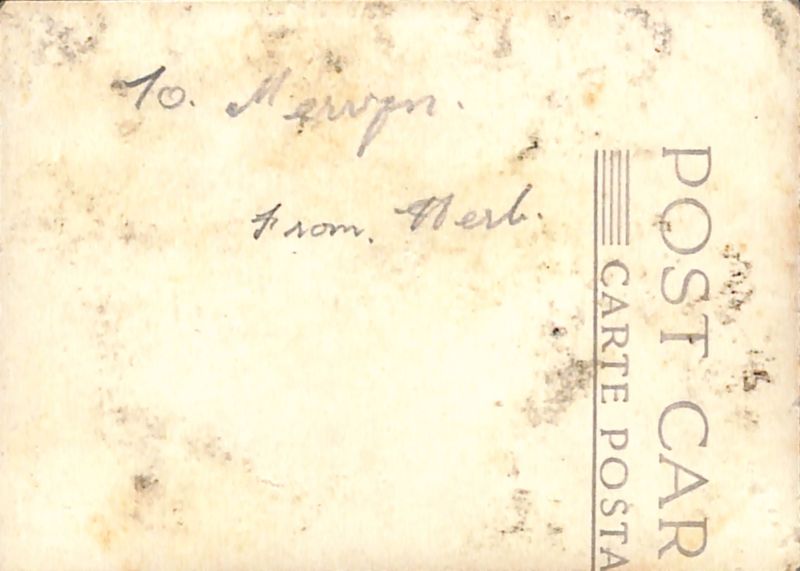 To. Mervyn.
From. Herb.
POST CAR
CARTE POSTA